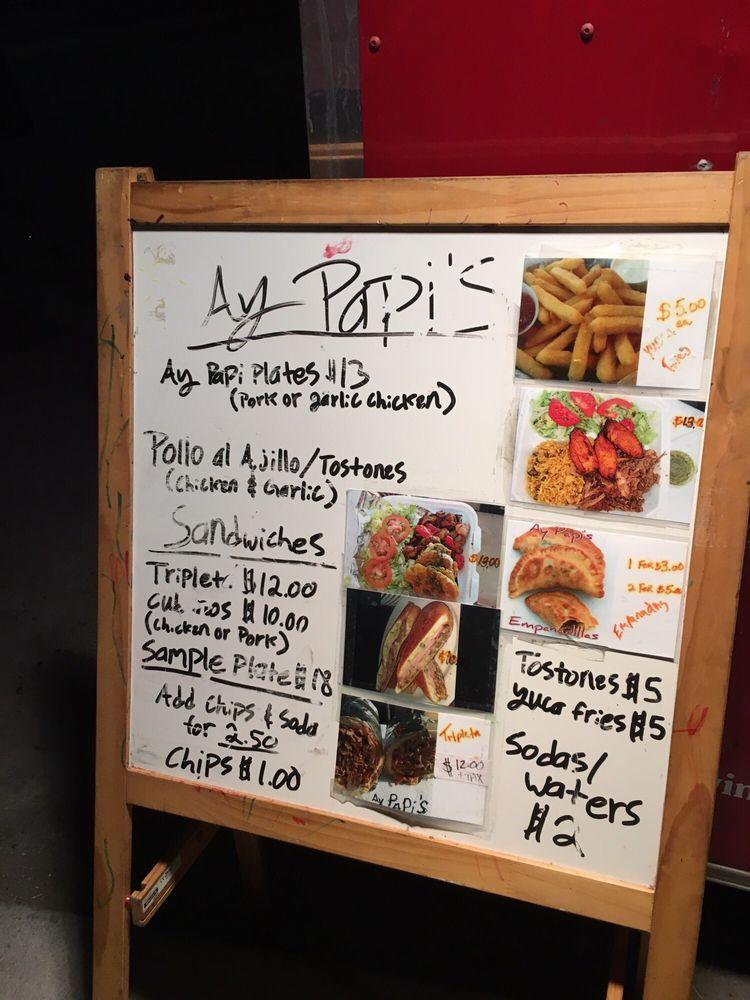 Ay Papi's
Ay Papi Plates $13
(Pork or garlic chicken)
Pollo al Ajillo/Tostones
(chicken & Garlic)
Sandwiches
Triplet. $12.00
$10.00
(chicken or Pork)
Sample Plate $18
Add chips & soda
for 2.50
Chips $1.00
$13.00
Tripleta
$12.00
+ TAX
Ay Papi's
$5.00
Fries
Ay Papi's
1 For $3.00
2 For $5.00
Empanadas
Empanadillas
Tostones $5
yuca fries $5
Sodas/
waters
$2